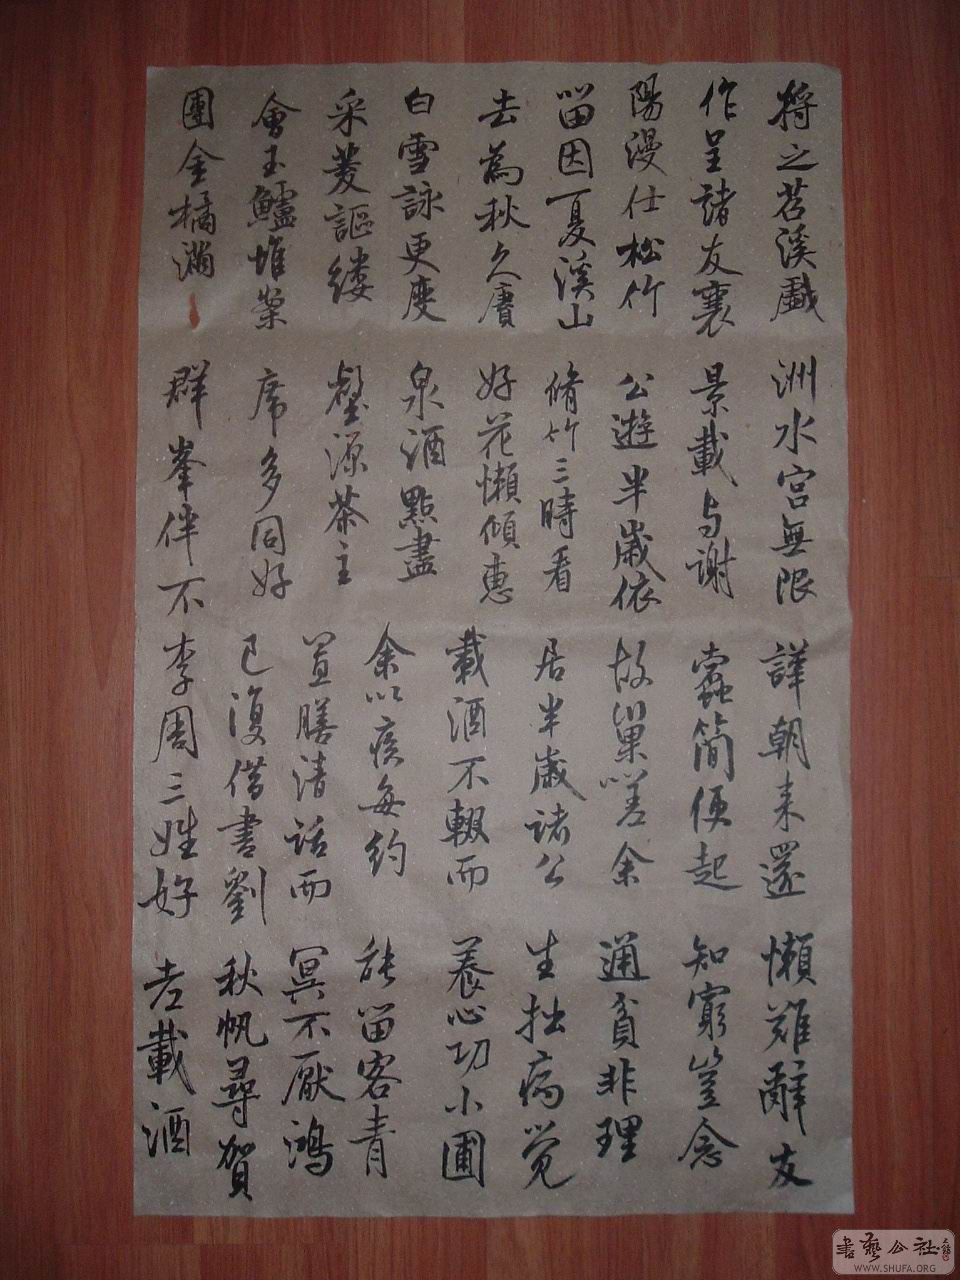 将之苕溪戲
作呈諸友襄
陽漫仕松竹
留因夏溪山
去為秋久賡
白雪詠更度
采菱謳縷
會玉鱸堆案
團金橘滿
洲水宫無限
景載与謝
公遊半歲依
脩竹三時看
好花懶傾惠
泉酒點盡
壑源茶主
席多同好
群峯伴不
譁朝来還
蠹簡便起
故巢嗟余
居半歲諸公
載酒不輟而
余以疾每約
置膳清話而
已復借書劉
李周三姓好
懶難辭友
知窮豈念
通貧非理
生拙病觉
養心功小圃
能留客青
冥不厭鴻
秋帆尋賀
老載酒
書藝公社
WWW.SHUFA.ORG